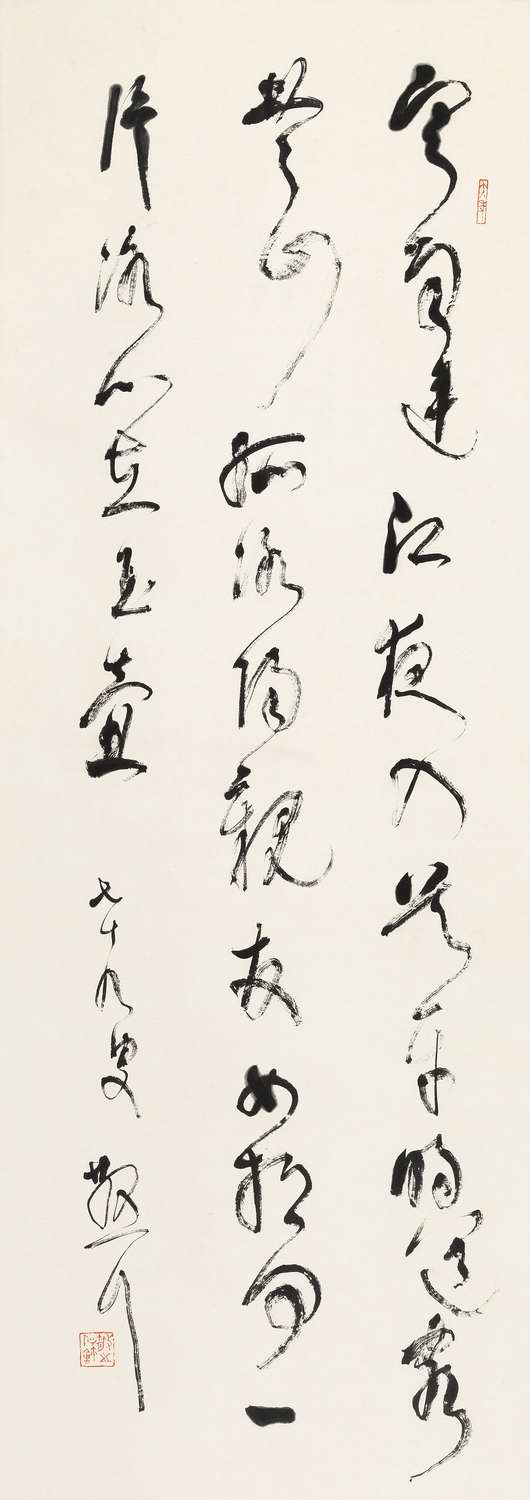 寒雨連江夜入吳平明送客
楚山孤洛陽親友如相問一
片冰心在玉壺
七十九叟散耳